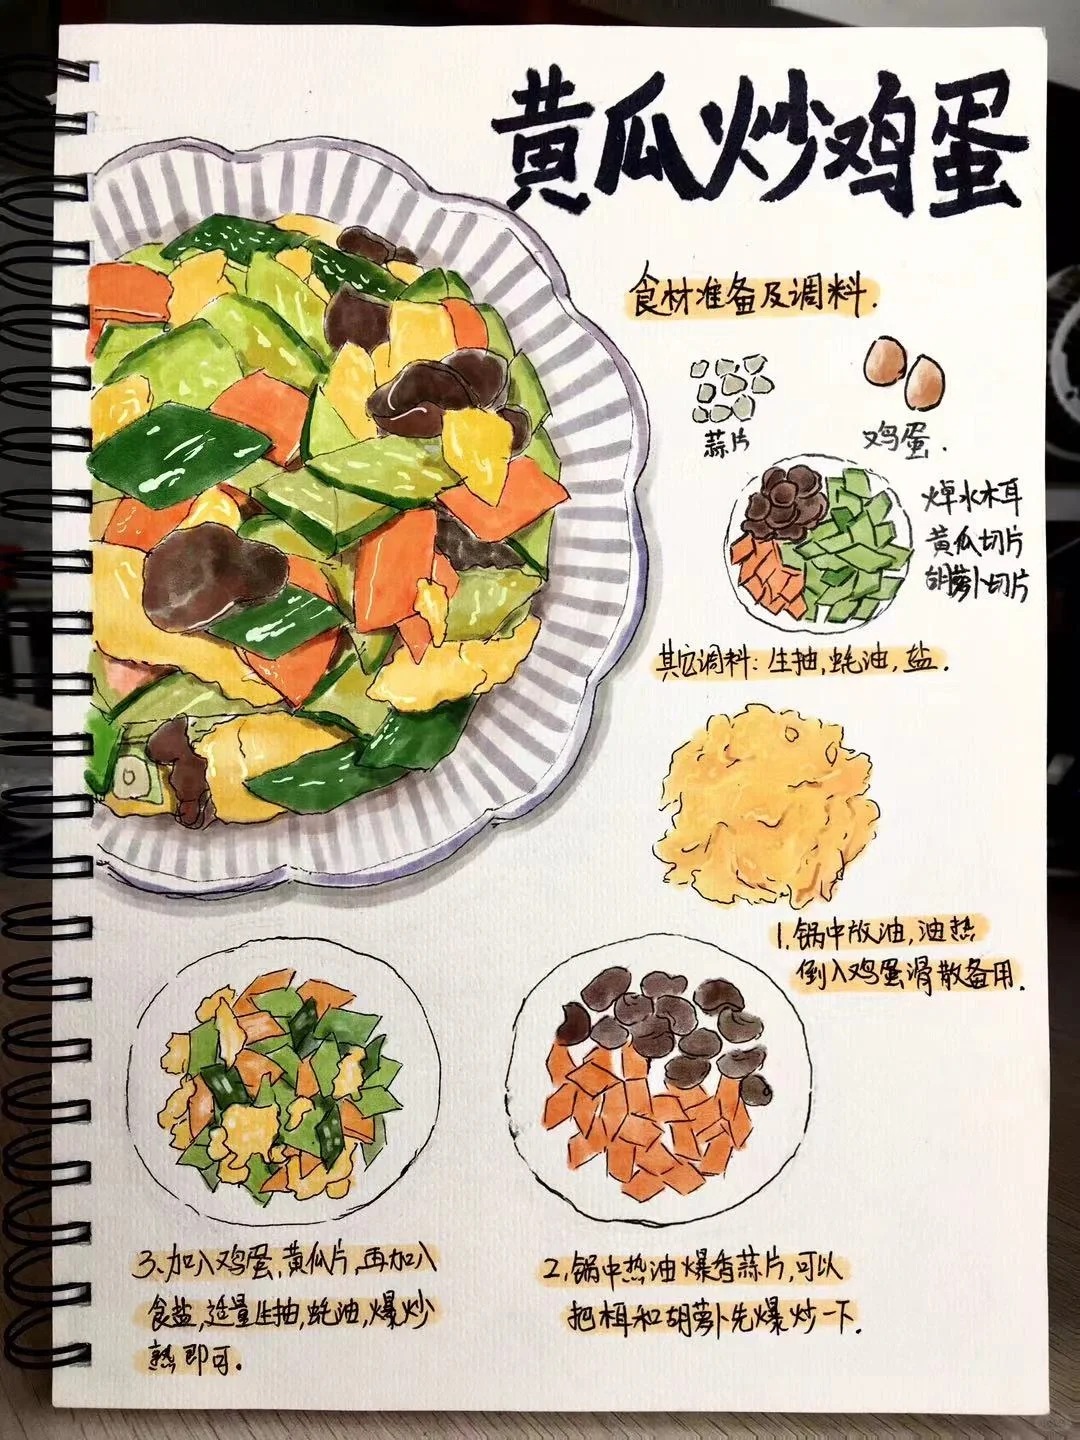 黄瓜炒鸡蛋
食材准备及调料.
蒜片
鸡蛋.
焯水木耳
黄瓜切片
胡萝卜切片
其它调料:生抽,蚝油,盐.
1.锅中放油,油热
倒入鸡蛋滑散备用.
2.锅中热油爆香蒜片,可以
把木耳和胡萝卜先爆炒一下.
3.加入鸡蛋,黄瓜片,再加入
食盐,适量生抽,蚝油,爆炒
熟即可.